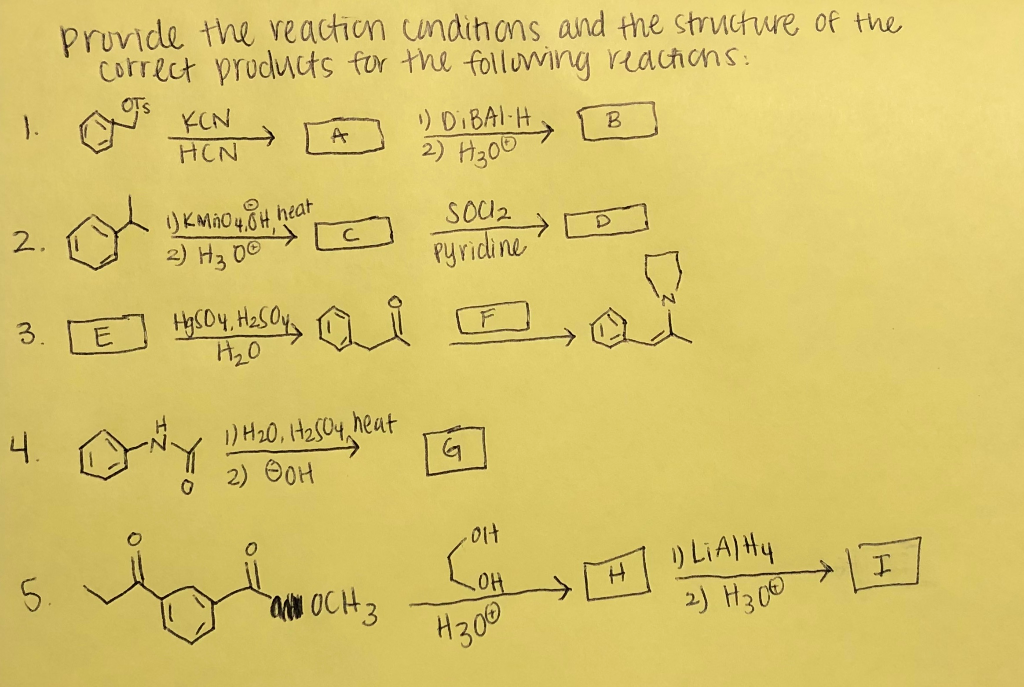 Provide the reaction conditions and the structure of the
correct products for the following reactions:
1. OTs KCN HCN A 1) DiBAl-H 2) H3O⊕ B
2. 1) KMnO4, ⊖OH, heat 2) H3O⊕ C SOCl2 pyridine D
3. E HgSO4, H2SO4 H2O O F N
4. H N O 1) H2O, H2SO4, heat 2) ⊖OH G
5. O O OCH3 OH OH H3O⊕ H 1) LiAlH4 2) H3O⊕ I